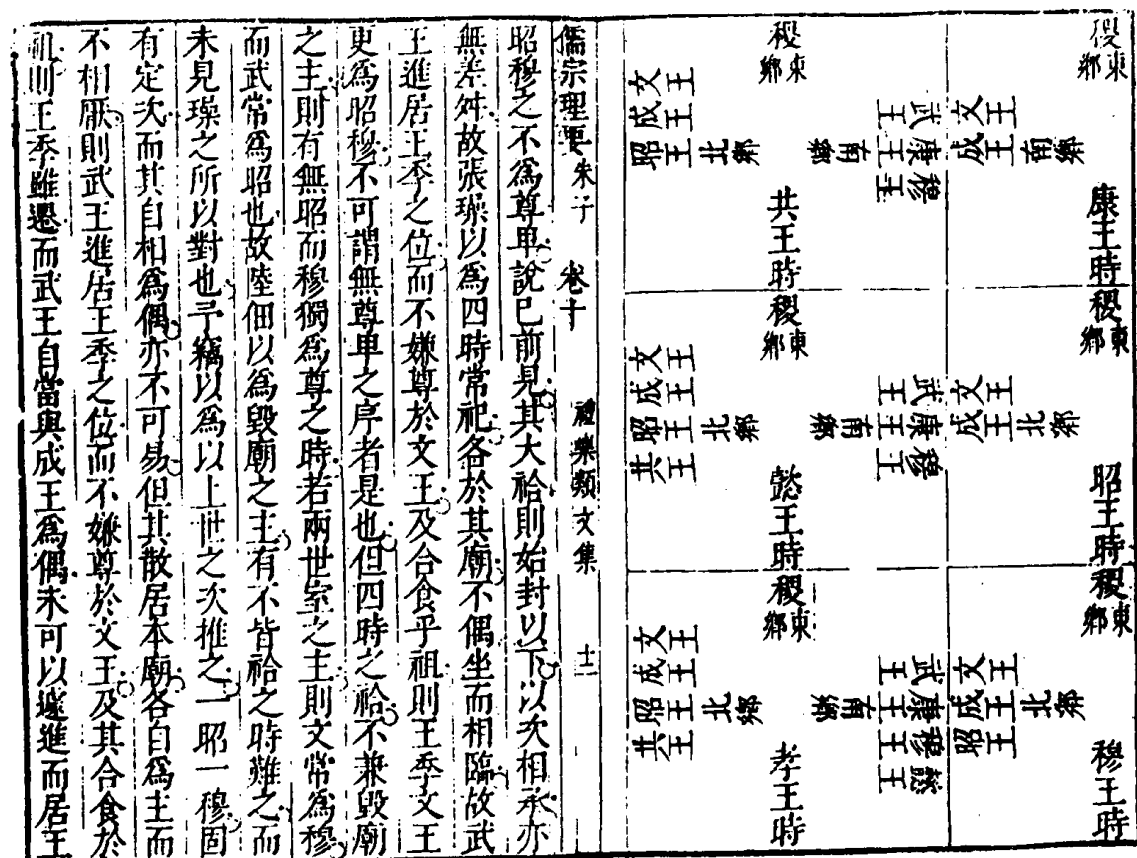 稷東鄉
文王
成王
南鄉
康王時
稷東鄉
文王
成王
北鄉
昭王時
稷東鄉
文王
成王
昭王
北鄉
穆王時
稷東鄉
武王
康王
穆王
南鄉
文王
成王
昭王
北鄉
共王時
稷東鄉
武王
康王
穆王
南鄉
文王
成王
昭王
共王
北鄉
懿王時
稷東鄉
武王
康王
穆王
懿王
南鄉
文王
成王
昭王
共王
北鄉
孝王時
儒宗理要 朱子 卷十 禮樂類文集 十一
昭穆之不為尊卑說已前見其大祫則始封以下以次相承亦
無差舛故張璪以為四時常祀各於其廟不偶坐而相臨故武
王進居王季之位而不嫌尊於文王及合食乎祖則王季文王
更為昭穆不可謂無尊卑之序者是也但四時之祫不兼毀廟
之主則有無昭而穆獨為尊之時若兩世室之主則文常為穆
而武常為昭也故陸佃以為毀廟之主有不皆祫之時難之而
未見璪之所以對也予竊以為以上世之次推之一昭一穆固
有定次而其自相為偶亦不可易但其散居本廟各自為主而
不相厭則武王進居王季之位而不嫌尊於文王及其合食於
祖則王季雖遷而武王自當與成王為偶未可以遽進而居王